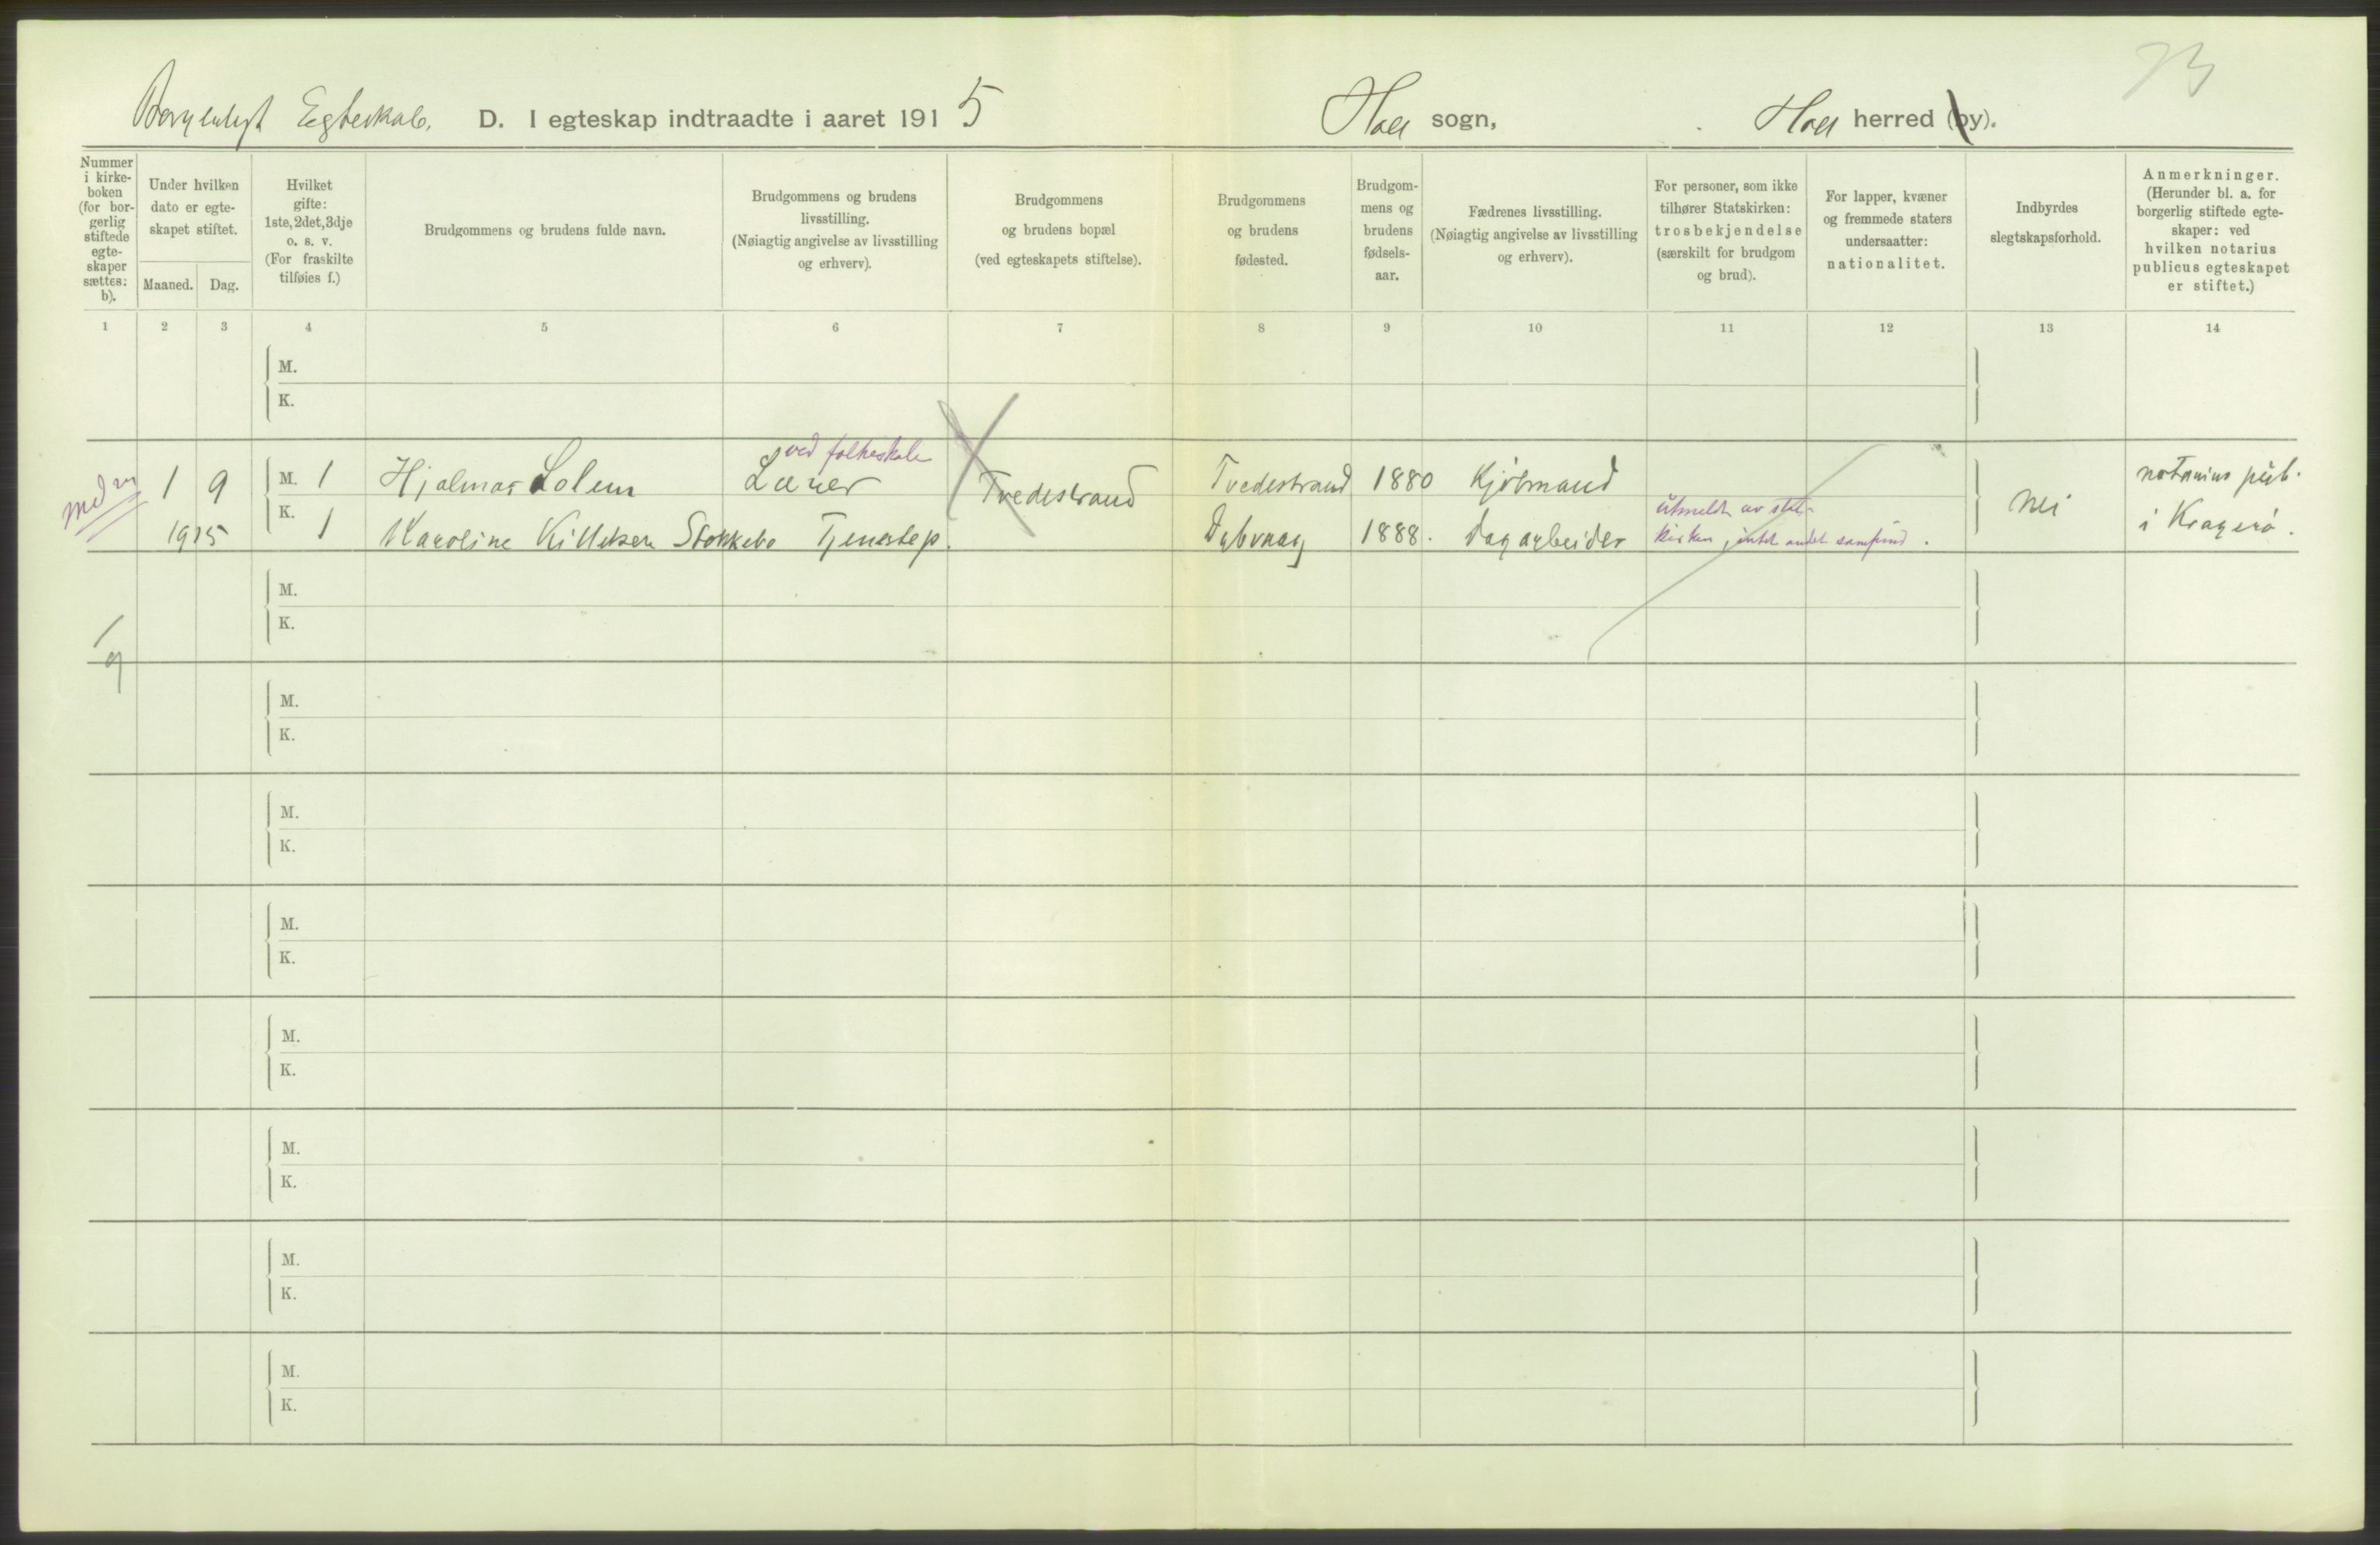 73
Borgerligt Egteskab. D. I egteskap indtraadte i aaret 1915 Holt sogn, Holt herred (by).
Nummer i kirke-boken (for bor-gerlig stiftede egte-skaper sættes: b).
Under hvilken dato er egte-skapet stiftet.
Maaned. Dag.
Hvilket gifte: 1ste, 2det, 3dje o. s. v. (For fraskilte tilføies f.)
Brudgommens og brudens fulde navn.
Brudgommens og brudens livsstilling. (Nøiagtig angivelse av livsstilling og erhverv).
Brudgommens og brudens bopæl (ved egteskapets stiftelse).
Brudgommens og brudens fødested.
Brudgom-mens og brudens fødsels-aar.
Fædrenes livsstilling. (Nøiagtig angivelse av livsstilling og erhverv).
For personer, som ikke tilhører Statskirken: trosbekjendelse (særskilt for brudgom og brud).
For lapper, kvæner og fremmede staters undersaatter: nationalitet.
Indbyrdes slegtskapsforhold.
Anmerkninger. (Herunder bl. a. for borgerlig stiftede egte-skaper: ved hvilken notarius publicus egteskapet er stiftet.)
1 2 3 4 5 6 7 8 9 10 11 12 13 14
M.
K.
ved folkeskole
1 9 M. 1 Hjalmar Solem Lærer Tvedestrand Tvedestrand 1880 Kjøbmand nei notarius pub.
1915 K. 1 Karoline Stokkebo Tjenestep. Dybvaag 1888. dagarbeider utmeldt av stats-
kirken, intet andet samfund. i Kragerø.
M.
K.
1
9
M.
K.
M.
K.
M.
K.
M.
K.
M.
K.
M.
K.
M.
K.